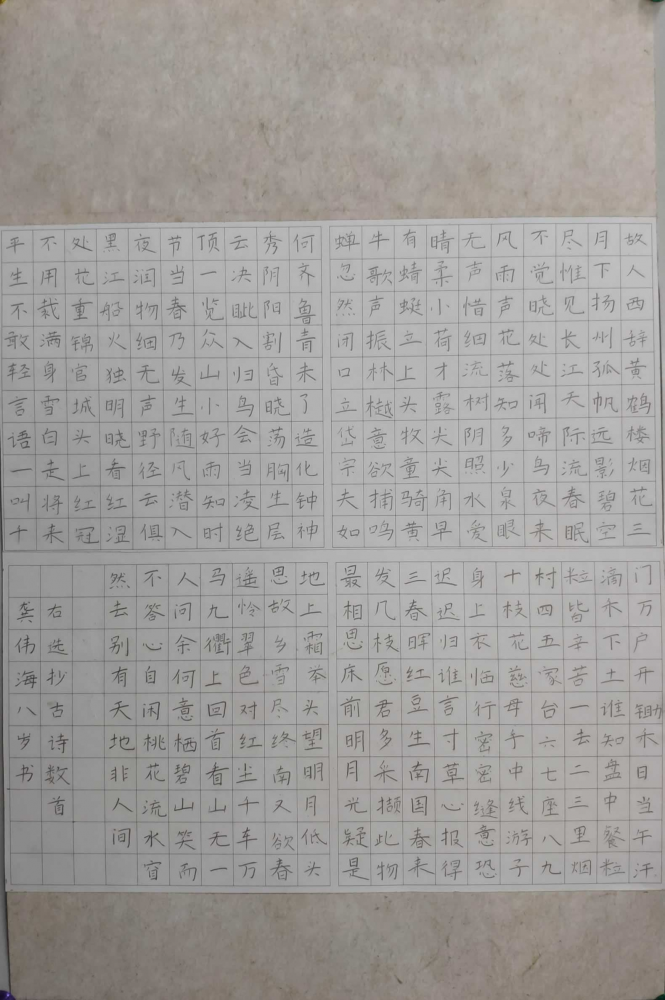 故人西辞黄鹤楼烟花三
月下扬州孤帆远影碧空
尽惟见长江天际流春眠
不觉晓处处闻啼鸟夜来
风雨声花落知多少泉眼
无声惜细流树阴照水爱
晴柔小荷才露尖尖角早
有蜻蜓立上头牧童骑黄
牛歌声振林樾意欲捕鸣
蝉忽然闭口立岱宗夫如
何齐鲁青未了造化钟神
秀阴阳割昏晓荡胸生层
云决眦入归鸟会当凌绝
顶一览众山小好雨知时
节当春乃发生随风潜入
夜润物细无声野径云俱
黑江船火独明晓看红湿
处花重锦官城头上红冠
不用裁满身雪白走将来
平生不敢轻言语一叫十
门万户开锄禾日当午汗
滴禾下土谁知盘中餐粒
粒皆辛苦一去二三里烟
村四五家台六七座八九
十枝花慈母手中线游子
身上衣临行密密缝意恐
迟迟归谁言寸草心报得
三春晖红豆生南国春来
发几枝愿君多采撷此物
最相思床前明月光疑是
地上霜举头望明月低头
思故乡雪尽终南又欲春
遥怜翠色对红尘千车万
马九衢上回首看山无一
人问余何意栖碧山笑而
不答心自闲桃花流水窅
然去别有天地非人间
右选抄古诗数首
龚伟海八岁书